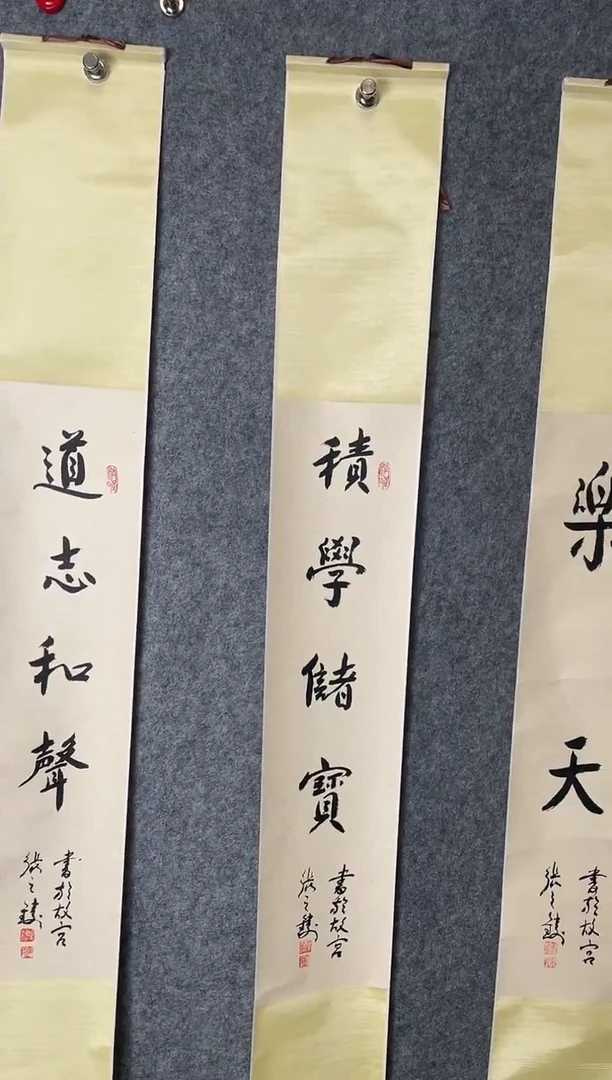 道志和聲
書於故宮
張之
積學儲寶
書於故宮
張之
樂天
書於故宮
張之